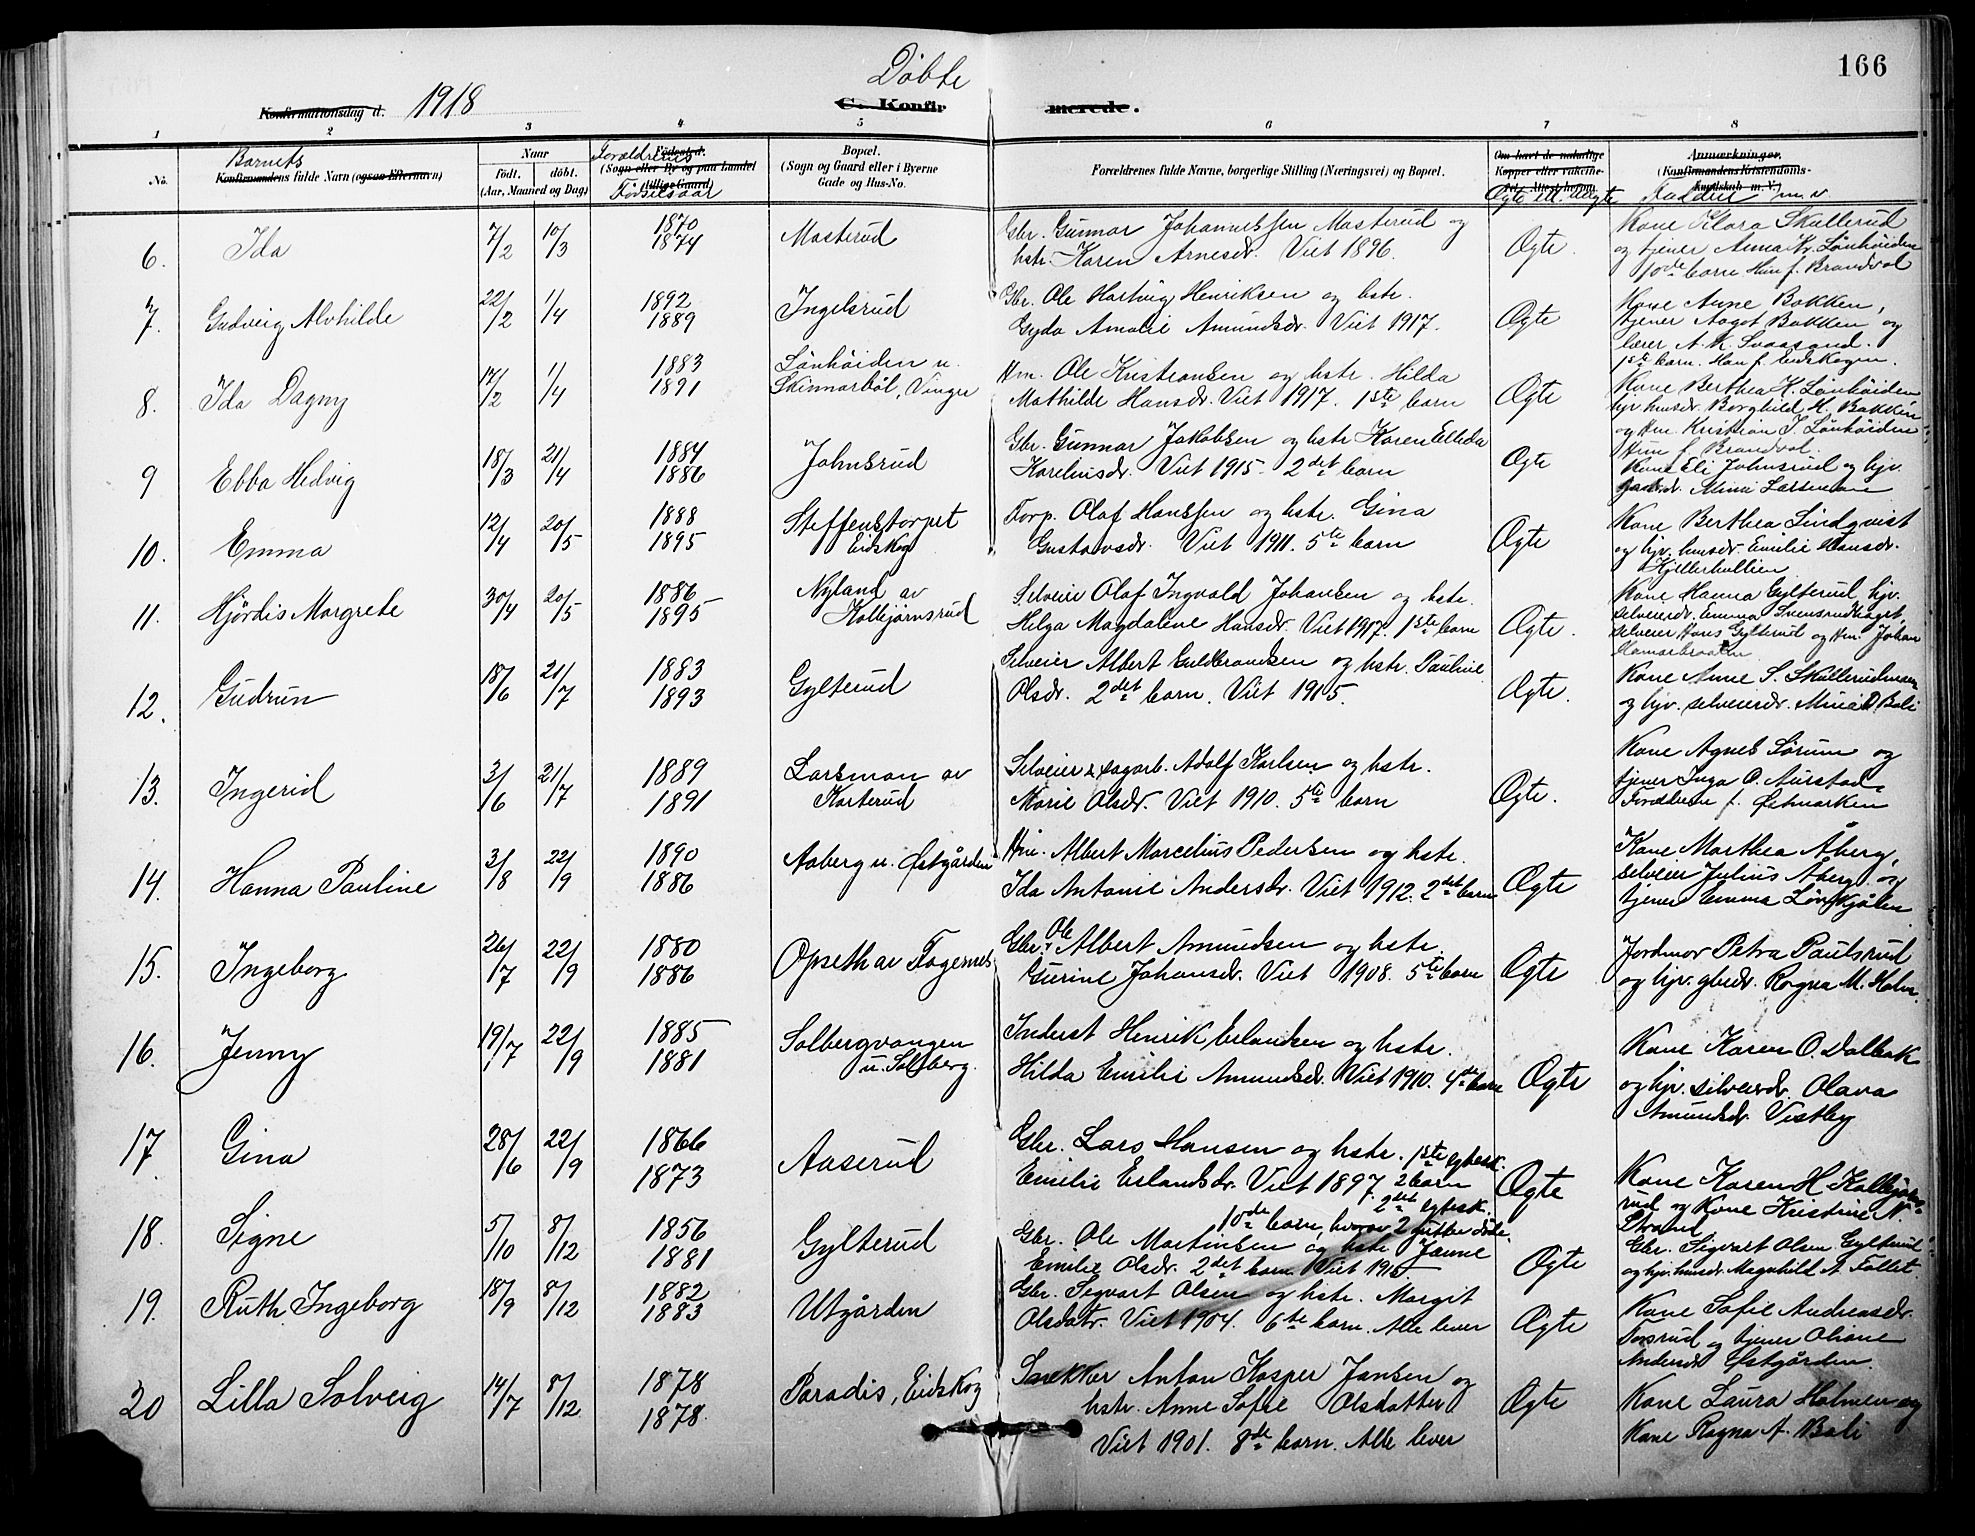 166
Døbte
Konfirmationsdag d. 1918
C. Konfirmerede.
1 2 3 4 5 6 7 8
No.
Barnets
Konfirmandens fulde Navn (ogsaa Efternavn)
Naar
født. døbt.
(Aar, Maaned og Dag)
Forældrenes
Fødested.
(Sogn eller By og paa Landet
tillige Gaard)
Fødselsaar
Bopæl.
(Sogn og Gaard eller i Byerne
Gade og Hus-No.
Forældrenes fulde Navne, borgerlige Stilling (Næringsvei) og Bopæl.
Om havt de naturlige
Kopper eller vakcine-
Ægte ell. Uægte
Anmærkninger.
(Konfirmandens Kristendoms-
Kundskab m. V.)
Faddere m. v.
6. Ida 7/2 10/3 1870 1874 Masterud
Gbr. Gunnar Johannessen Masterud og
hstr. Karen Arnesdr. Viet 1896.
Ægte.
Kone Klara Skullerud
og tjener Anna K. Lønhøiden
10de barn Hun f. Brandval
7. Gudveig Alvhilde 22/2 1/4 1892 1889 Ingelsrud
Gbr. Ole Hartvig Henriksen og hstr.
Gyda Amalie Amundsdr. Viet 1917.
Ægte
Kone Anne Bakken,
tjener Aagot Bakken og
lærer A. K. Svaasand.
1ste barn. Han f. Eidskogen.
8. Ida Dagny 17/2 1/4 1883 1891
Lønhøiden u.
Skinnarbøl, Vinger
Hm. Ole Kristiansen og hstr. Hilda
Mathilde Hansdr. Viet 1917. 1ste barn
Ægte
Kone Berthea K. Lønhøiden
hjv. husdr. Borghild H. Bakken
og Hm. Kristian J. Lønhøiden
Hun f. Brandval.
9 Ebba Hedvig 18/3 21/4 1884 1886 Johnsrud
Gbr. Gunnar Jakobsen og hstr Karen Elleda
Kareliusdr. Viet 1915. 2det barn
Ægte
Kone Eli Johnsrud og hjv.
gaardr. Mimi Larsmoen
10. Emma 12/4 20/5 1888 1895
Steffenstorpet
Eidskog
Forp. Olaf Hanssen og hstr. Gina
Gustavsdr. Viet 1911. 5te barn
Ægte
Kone Berthea Lindqvist
og hjv. husdr. Emilie Hansdr.
Kjellerhullien
11. Hjørdis Margrete 30/4 20/5 1886 1895
Nyland av
Kolbjørnsrud
Selveier Olaf Ingvald Johansen og hstr.
Helga Magdalene Hansdr. Viet 1917. 1ste barn
Ægte.
Kone Hanna Gylterud, hjv.
selveierdr. Emma Svensrudhaget,
selveier Hans Gylterud og Hm. Johan
12. Gudrun 18/6 21/7 1883 1893 Gylterud
Selveier Albert Guldbrandsen og hstr. Pauline
Olsdr. 2det barn. Viet 1915.
Ægte.
Kone Anne S. Skullerudmoen
og hjv. selveierdr. Mina D. Bali
13. Ingerid 3/6 21/7 1889 1891
Larsmon av
Karterud
Selveier & sagarb. Adolf Karlsen og hstr.
Marie Olsdr. Viet 1910. 5te barn
Ægte.
Kone Agnes Sørum og
tjener Inga O. Aurstad.
Forældrene f. Østmarken
14. Hanna Pauline 3/8 22/9 1890 1886 Aaberg u. Østgården
Hm. Albert Marcelius Pedersen og hstr.
Ida Antonie Andersdr. Viet 1912. 2det barn
Ægte
Kone Marthea Åberg,
selveier Julius Åberg og
tjener Emma Lønkjølen
15. Ingeborg 26/7 22/9 1880 1886 Opseth av Fagernes
Gbr. Ole Albert Amundsen og hstr.
Gurine Johansdr. Viet 1908. 5te barn
Ægte
Jordmor Petra Paulsrud
og hjv. gbrdr. Ragna M. Holm
16. Jenny 19/7 22/9 1885 1881
Solbergvangen
u. Solberg.
Inderst Henrik Erlandsen og hstr.
Hilda Emilie Amundsdr. Viet 1910. 4de barn
Ægte
Kone Karen O. Dalbak
og hjv. selveierdr. Olava
Amundsdr. Vestby
17. Gina 28/6 22/9 1866 1873 Aaserud
Gbr. Lars Hansen og hstr. 1ste egtesk.
Emilie Erlandsdr. Viet 1897. 2 barn
2det egtesk.
10de barn, hvorav 2 gutter døde.
Ægte
Kone Karen H. Kolbjørns-
rud og Kone Kristine N.
Strand
18. Signe 5/10 8/12 1856 1881 Gylterud
Gbr. Ole Martinsen og hstr Janne
Emilie Olsdr. 2det barn Viet 1915
Ægte
Gbr. Sigvart Olsen Gylterud
og hjv. husdr. Magnhild A. Fallet
19. Ruth Ingeborg 18/9 8/12 1882 1883 Utgården
Gbr. Segvart Olsen og hstr. Margit
Olsdatr. Viet 1904. 6te barn. Alle lever
Ægte
Kone Sofie Andreasdr.
Forsrud og tjener Oliane
Andersdr Østgården.
20 Lilla Solveig 14/7 8/12 1878 1878. Paradis, Eidskog
Snekker Anton Kasper Jansen og
hstr. Anne Sofie Olsdatter
Viet 1901. 8de barn. Alle lever
Ægte
Kone Laura Holmen og
Kone Ragna A. Bali